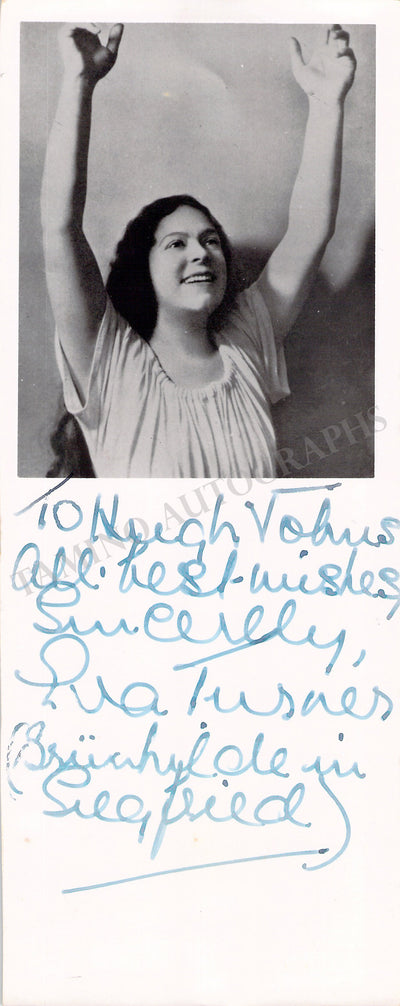 To Hugh Johns
All best wishes
Sincerely,
Eva Turner
(Brünhilde in
Siegfried)
TAMINO AUTOGRAPHS